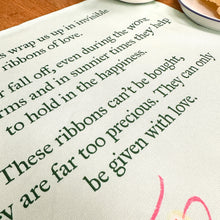 s wrap us up in invisible
ribbons of love.
r fall off, even during the worst
rms and in sunnier times they help
to hold in the happiness.
These ribbons can't be bought,
y are far too precious. They can only
be given with love.